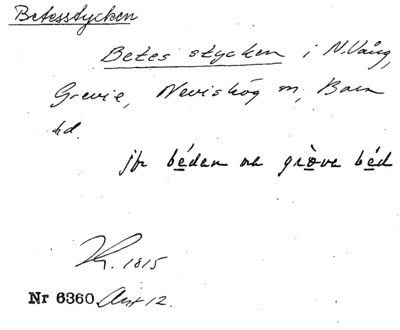 Betesstycken
Betes stycken i N.Vång,
Grevie, Nevishög m, Bara
hd.
jfr béden na gròva béd
1815
Nr 6360 Avt 12.